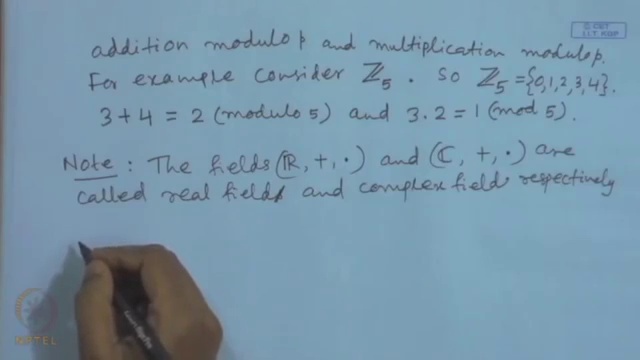 © CET
I.I.T. KGP
addition modulo p and multiplication modulo p.
For example consider ℤ₅. So ℤ₅ = {0,1,2,3,4}.
3 + 4 = 2 (modulo 5) and 3.2 = 1 (mod 5).
Note : The fields (ℝ, +, ·) and (ℂ, +, ·) are
called real field and complex field respectively
NPTEL